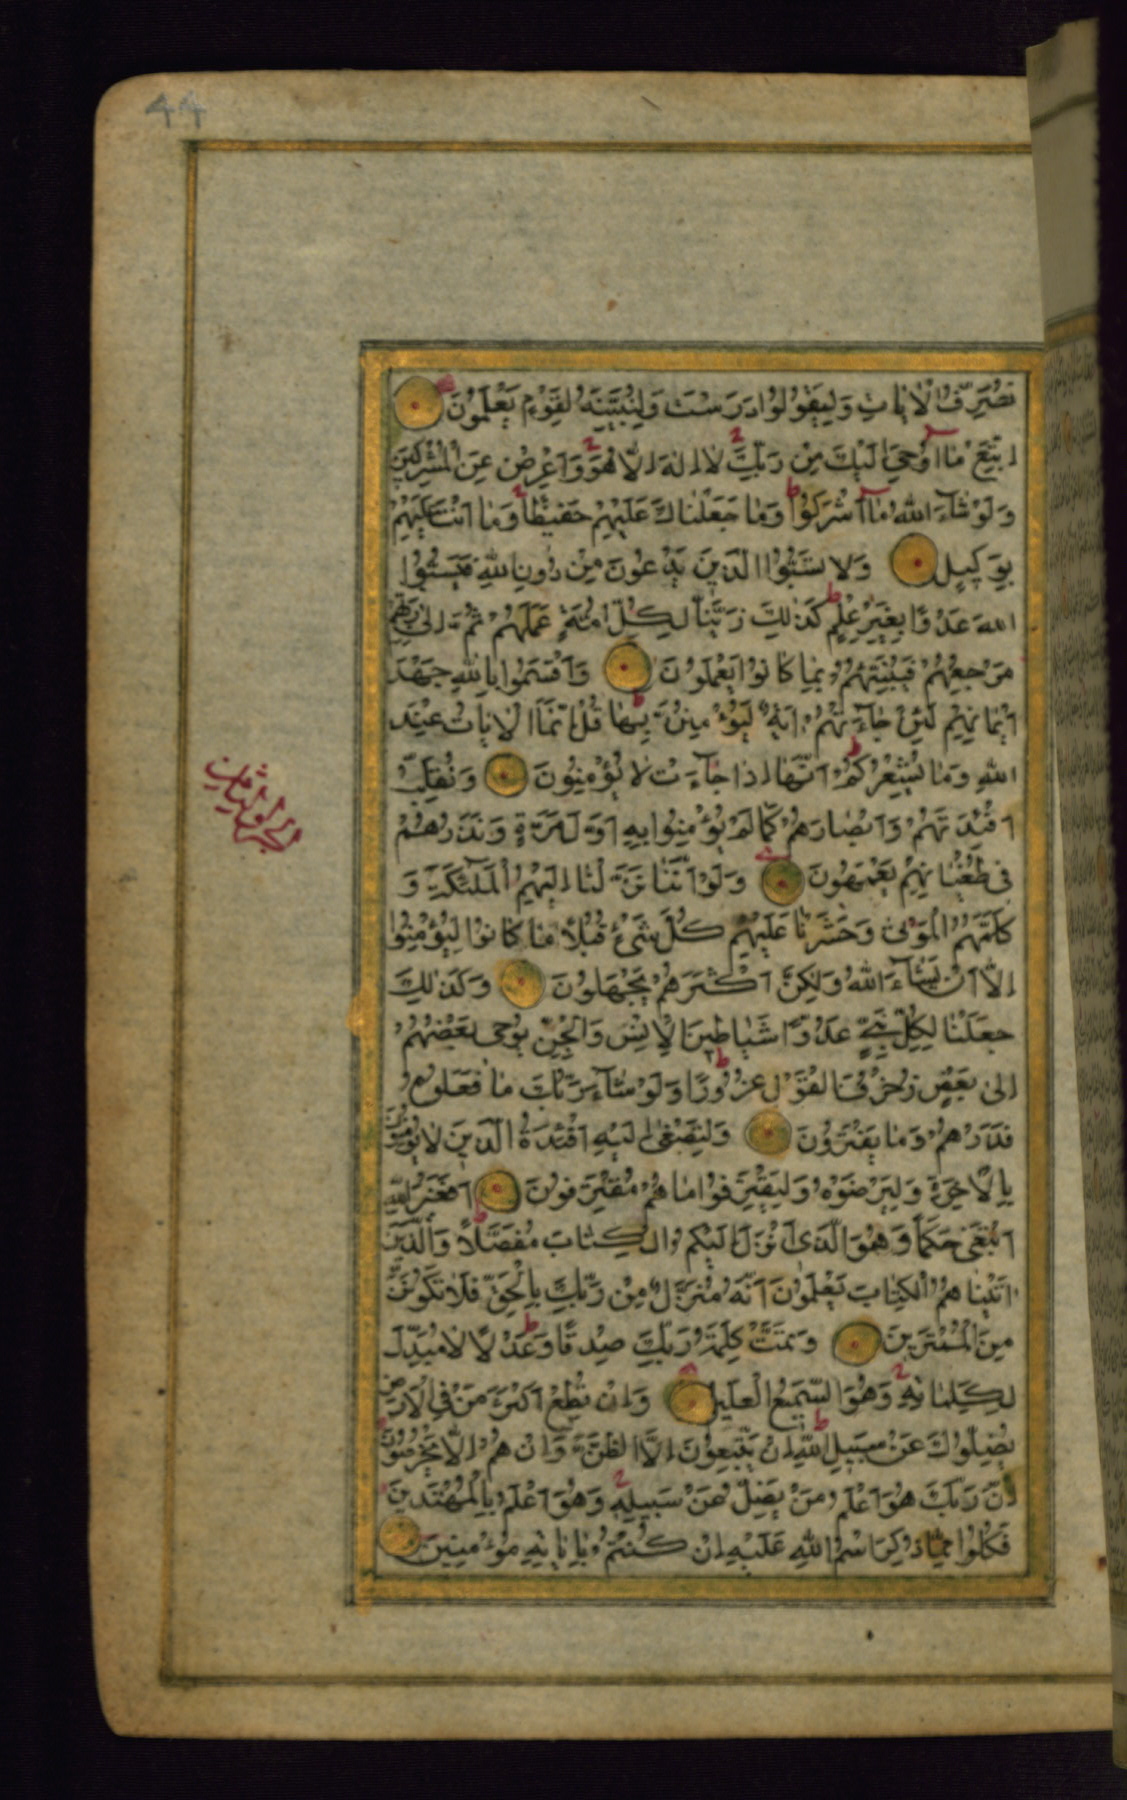 44
نُصَرِّفُ الْاٰيَاتِ وَلِيَقُولُوا دَرَسْتَ وَلِنُبَيِّنَهُ لِقَوْمٍ يَعْلَمُونَ
اِتَّبِعْ مَا اُوحِيَ اِلَيْكَ مِنْ رَبِّكَ لَا اِلٰهَ اِلَّا هُوَ وَاَعْرِضْ عَنِ الْمُشْرِكِينَ
وَلَوْ شَآءَ اللّٰهُ مَا اَشْرَكُوا وَمَا جَعَلْنَاكَ عَلَيْهِمْ حَفِيظًا وَمَا اَنْتَ عَلَيْهِمْ
بِوَكِيلٍ وَلَا تَسُبُّوا الَّذِينَ يَدْعُونَ مِنْ دُونِ اللّٰهِ فَيَسُبُّوا
اللّٰهَ عَدْوًا بِغَيْرِ عِلْمٍ كَذٰلِكَ زَيَّنَّا لِكُلِّ اُمَّةٍ عَمَلَهُمْ ثُمَّ اِلٰى رَبِّهِمْ
مَرْجِعُهُمْ فَيُنَبِّئُهُمْ بِمَا كَانُوا يَعْمَلُونَ وَاَقْسَمُوا بِاللّٰهِ جَهْدَ
اَيْمَانِهِمْ لَئِنْ جَآءَتْهُمْ اٰيَةٌ لَيُؤْمِنُنَّ بِهَا قُلْ اِنَّمَا الْاٰيَاتُ عِنْدَ
اللّٰهِ وَمَا يُشْعِرُكُمْ اَنَّهَا اِذَا جَآءَتْ لَا يُؤْمِنُونَ وَنُقَلِّبُ
اَفْئِدَتَهُمْ وَاَبْصَارَهُمْ كَمَا لَمْ يُؤْمِنُوا بِهِ اَوَّلَ مَرَّةٍ وَنَذَرُهُمْ
فِي طُغْيَانِهِمْ يَعْمَهُونَ وَلَوْ اَنَّنَا نَزَّلْنَا اِلَيْهِمُ الْمَلٰٓئِكَةَ وَ
كَلَّمَهُمُ الْمَوْتٰى وَحَشَرْنَا عَلَيْهِمْ كُلَّ شَيْءٍ قُبُلًا مَا كَانُوا لِيُؤْمِنُوا
اِلَّا اَنْ يَشَآءَ اللّٰهُ وَلٰكِنَّ اَكْثَرَهُمْ يَجْهَلُونَ وَكَذٰلِكَ
جَعَلْنَا لِكُلِّ نَبِيٍّ عَدُوًّا شَيَاطِينَ الْاِنْسِ وَالْجِنِّ يُوحِي بَعْضُهُمْ
اِلٰى بَعْضٍ زُخْرُفَ الْقَوْلِ غُرُورًا وَلَوْ شَآءَ رَبُّكَ مَا فَعَلُوهُ
فَذَرْهُمْ وَمَا يَفْتَرُونَ وَلِتَصْغٰى اِلَيْهِ اَفْئِدَةُ الَّذِينَ لَا يُؤْمِنُونَ
بِالْاٰخِرَةِ وَلِيَرْضَوْهُ وَلِيَقْتَرِفُوا مَا هُمْ مُقْتَرِفُونَ اَفَغَيْرَ اللّٰهِ
اَبْتَغِي حَكَمًا وَهُوَ الَّذِي اَنْزَلَ اِلَيْكُمُ الْكِتَابَ مُفَصَّلًا وَالَّذِينَ
اٰتَيْنَاهُمُ الْكِتَابَ يَعْلَمُونَ اَنَّهُ مُنَزَّلٌ مِنْ رَبِّكَ بِالْحَقِّ فَلَا تَكُونَنَّ
مِنَ الْمُمْتَرِينَ وَتَمَّتْ كَلِمَةُ رَبِّكَ صِدْقًا وَعَدْلًا لَا مُبَدِّلَ
لِكَلِمَاتِهِ وَهُوَ السَّمِيعُ الْعَلِيمُ وَاِنْ تُطِعْ اَكْثَرَ مَنْ فِي الْاَرْضِ
يُضِلُّوكَ عَنْ سَبِيلِ اللّٰهِ اِنْ يَتَّبِعُونَ اِلَّا الظَّنَّ وَاِنْ هُمْ اِلَّا يَخْرُصُونَ
اِنَّ رَبَّكَ هُوَ اَعْلَمُ مَنْ يَضِلُّ عَنْ سَبِيلِهِ وَهُوَ اَعْلَمُ بِالْمُهْتَدِينَ
فَكُلُوا مِمَّا ذُكِرَ اسْمُ اللّٰهِ عَلَيْهِ اِنْ كُنْتُمْ بِاٰيَاتِهِ مُؤْمِنِينَ